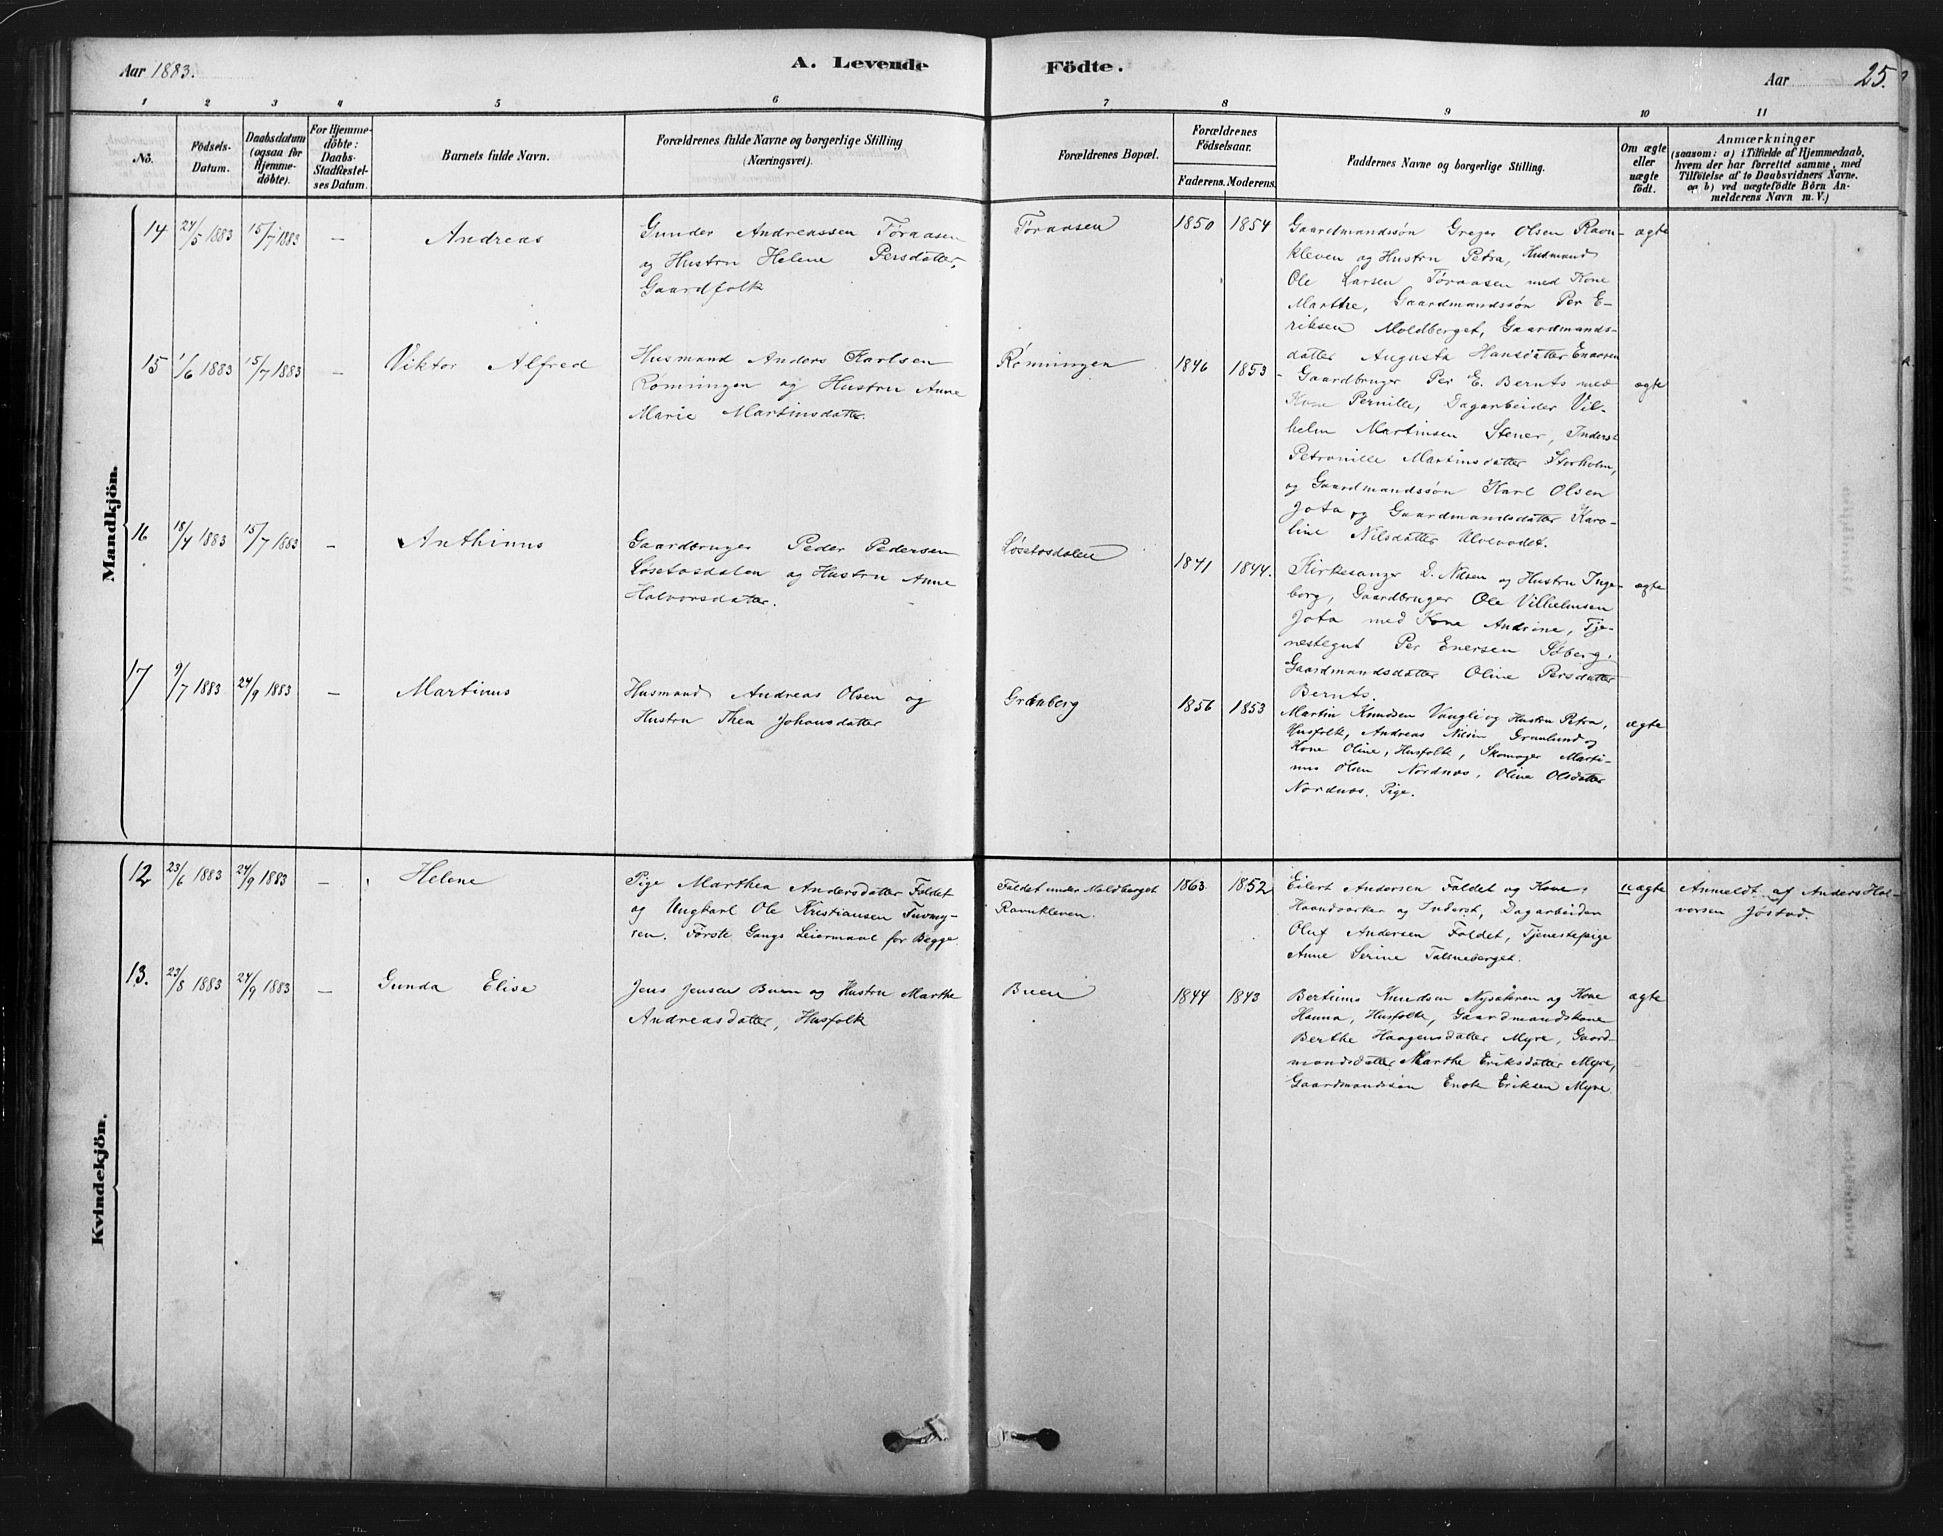 Aar 1883.
A. Levende Födte.
Aar 25.
1 2 3 4 5 6 7 8 9 10 11
No.
Födsels-
Datum.
Daabsdatum
(ogsaa for
Hjemme-
döbte).
For Hjemme-
döbte:
Daabs-
Stadfæstel-
ses Datum.
Barnets fulde Navn.
Forældrenes fulde Navne og borgerlige Stilling
(Næringsvei).
Forældrenes Bopæl.
Forældrenes
Födselsaar.
Faderens. Moderens.
Faddernes Navne og borgerlige Stilling.
Om ægte
eller
uægte
födt.
Anmærkninger
(saasom: a) i Tilfælde af Hjemmedaab,
hvem der har forrettet samme, med
Tilföielse af to Daabsvidners Navne.
og b) ved uægtefödte Börn An-
melderens Navn m. V.)
Mandkjön.
14 24/5 1883 15/7 1883 — Andreas
Gunder Andreassen Töraasen
og Hustru Helene Persdatter,
Gaardfolk
Töraasen
1850 1854
Gaardmandssøn Greger Olsen Ravn-
kleven og Hustru Petra, Husmand
Ole Larsen Töraasen med Kone
Marthe, Gaardmandssøn Per E-
riksen Moldberget, Gaardmands-
datter Augusta Hansdatter
ægte
15 1/6 1883 15/7 1883 — Viktor Alfred
Husmand Anders Karlsen
Rømningen og Hustru Anne
Marie Martinsdatter.
Rømningen
1846 1853
Gaardbruger Per E. Bernts med
Kone Pernille, Dagarbeider Vil-
helm Martinsen Stener, Inderst
Petronille Martinsdatter Storholm,
og Gaardmandssøn Karl Olsen
Jota og Gaardmandsdatter Karo-
line Nilsdatter Ulvevadet.
ægte
16 18/4 1883 15/7 1883 — Anthinus
Gaardbruger Peder Pedersen
Løsetosdalen og Hustru Anne
Halvorsdatter.
Løsetosdalen
1841 1844.
Kirkesanger D. Nilsen og Hustru Inge-
borg, Gaardbruger Ole Vilhelmsen
Jota med Kone Andrine, Tje-
nestegut Per Enersen Söberg,
Gaardmandsdatter Oline Persdatter
Bernts.
ægte
17 9/7 1883 24/9 1883 — Martinus
Husmand Andreas Olsen og
Hustru Thea Johansdatter
Grænberg
1856 1853
Martin Knudsen Vangli og Hustru Petra,
Husfolk, Andreas Nilsen Grønlund og
Kone Oline, Husfolk, Skomager Marti-
nus Olsen Nordnæs, Oline Olsdatter
Nordnæs. Pige.
ægte
Kvindekjön.
12 23/6 1883 24/9 1883 — Helene
Pige Marthea Andersdatter Faldet
og Ungkarl Ole Kristiansen Furmy-
ren. Første Gangs Leiermaal for Begge.
Faldet under Moldberget
Ravnkleven.
1863 1852
Eilert Andersen Faldet og Kone,
Haandværker og Inderst, Dagarbeider
Oluf Andersen Faldet, Tjenestepige
Anne Serine
uægte
Anmeldt af Anders Hal-
vorsen Jøstad.
13. 23/8 1883 24/9 1883 — Gunda Elise
Jens Jensen Buen og Hustru Marthe
Andreasdatter, Husfolk
Buen
1844 1843
Bertinus Knudsen Nysætren og Kone
Hanna, Husfolk, Gaardmandskone
Berthe Haagensdatter Myre, Gaard-
mandsdatter Marthe Eriksdatter Myre,
Gaardmandssøn Enok Eriksen Myre.
ægte